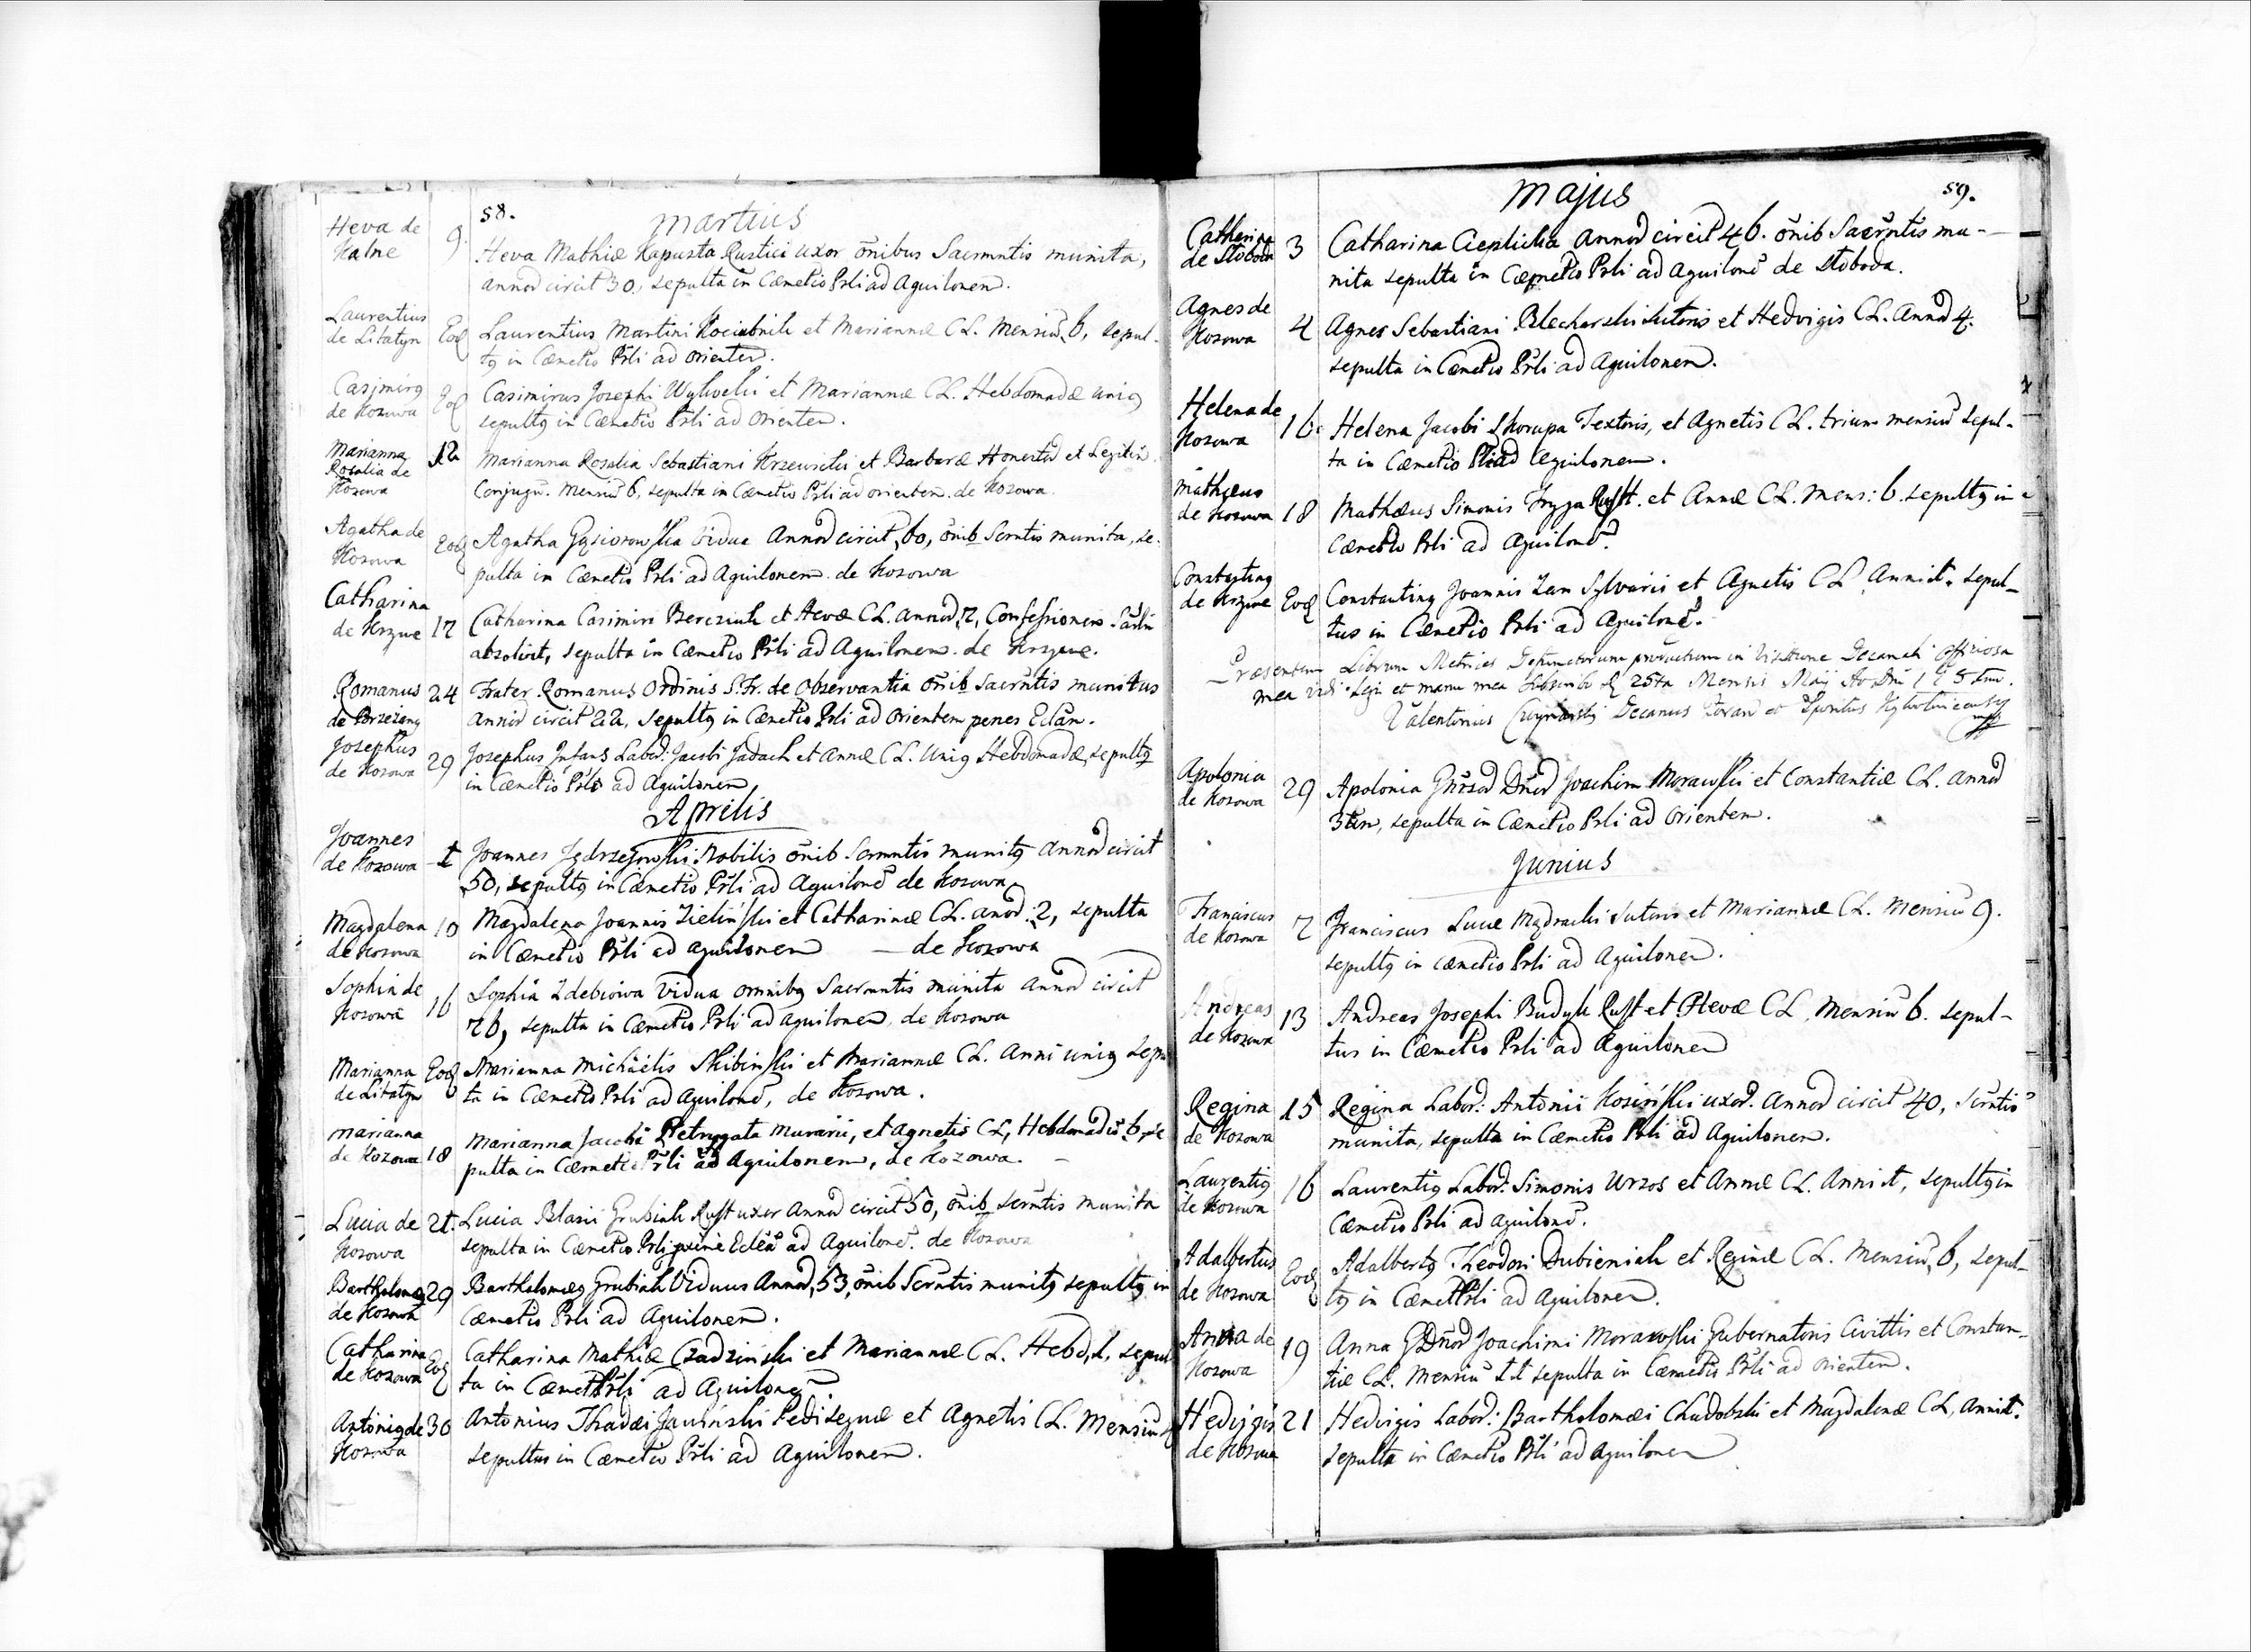 58.
Martius
Heva de
Kalne
9.
Heva Mathiæ Kapusta Rustici uxor õnibus Sacrmntis munita,
annor circit 30, sepulta in Cæmetio Prli ad Aquilonem.
Laurentius
de Litatyn
Eod
Laurentius Martini Kociubnik et Mariannæ CL. Mensiu 6, sepul-
tg in Cæmetio Prli ad Orientem.
Casimirg
de Kozowa
Eod
Casimirus Josephi et Mariannæ CL. Hebdomadæ unig
sepultg in Cæmetio Prli ad Orientem.
Marianna
Rosalia de
Kozowa
12
Marianna Rosalia Sebastiani Krzewicki et Barbaræ Honestor et Legitim.
Conjugũ. Mensiu 6, sepulta in Cæmetio Prli ad orientem. de Kozowa.
Agatha de
Kozowa
Eod
Agatha Gąsiorowska vidua Annor circit, 60, õnib Scrntis munita, se-
pulta in Cæmetio Prli ad Aquilonem. de Kozowa
Catharina
de Krzywe
17
Catharina Casimiri Bercziuk et Hevæ CL. annor, 7, Confessionem
absolvit, sepulta in Cæmetio Prli ad Aquilonem. de Krzywe.
Romanus
de Brzezany
24
Frater Romanus Ordinis S. Fr. de Observantia õnib sacrntis munitus
annor circit 22, sepultg in Cæmetio Prli ad Orientem penes Eclãm.
Josephus
de Kozowa
29
Josephus Infans Labor: Jacobi Jadach et Annæ CL. Unig Hebdomadæ, sepultg
in Cæmetio Prli ad Aquilonem,
Aprilis
Joannes
de Kozowa
1
Joannes Jędrzejowski Nobilis õnib Scrmntis munitg annor circit
50, sepultg in Cæmetio Prli ad Aquilonẽ de Kozowa
Magdalena
de Kozowa
10
Magdalena Joannis Zieliński et Catharinæ CL. anor: 2, sepulta
in Cæmetio Prli ad aquilonem — de Kozowa
Sophia de
Kozowa
16
Sophia Zdebiowa Vidua omnibg Sacrmntis munita annor circit
76, sepulta in Cæmetio Prli ad aquilonem, de Kozowa
Marianna
de Litatyn
Eod
Marianna Michaelis Skibiński et Mariannæ CL. Anni unig sepu
ta in Cæmetio Prli ad Aquilonẽ, de Kozowa.
Marianna
de Kozowa
18
Marianna Jacobi Pietrygata Murarii, et Agnetis CL, Hebdomadis 6, se
pulta in Cæmetio Prli ad Aquilonem, de Kozowa. –
Lucia de
Kozowa
21.
Lucia Blasii Grubiak Rust uxor Annor circit 50, õnib Scrntis munita
sepulta in Cæmetio Prli Eclẽa ad Aquilonẽ. de Kozowa
Bartholomeg
de Kozowa
29
Bartholomæg Grubiak Viduus Annor, 53, õnib Scrntis munitg sepultg in
Cæmetio Prli ad Aquilonem.
Catharina
de Kozowa
Eod
Catharina Mathiæ Czadziński et Mariannæ CL. Hebd, 1, sepul
ta in Cæmet Prli ad Aquilonem.
Antonig de
Kozowa
30
Antonius Thadæi Jawiński Pedisequæ et Agnetis CL. Mensiu
sepultus in Cæmetio Prli ad Aquilonem.
59.
Majus
Catherina
de Słoboda
3
Catharina Cieplicka Annor circit 46. õnib Sacrntis mu-
nita sepulta in Cæmetio Prli ad Aquilonẽ de Słoboda.
Agnes de
Kozowa
4
Agnes Sebastiani Blecharski Sutoris et Hedvigis CL. Annor 4.
sepulta in Cæmetio Prli ad Aquilonem.
Helena de
Kozowa
16
Helena Jacobi Skorupa Textoris, et Agnetis CL. trium mensiu sepul-
ta in Cæmetio Prli ad Aquilonem.
Mathæus
de Kozowa
18
Mathæus Simonis Fryga Rust. et Annæ CL. Mens: 6. sepultg in
Cæmetio Prli ad Aquilonẽ.
Constanting
de Krzywe
Eod
Constanting Joannis Zam Sylvarii et Agnetis CL. Anni 1. sepul-
tus in Cæmetio Prli ad Aquilonẽ.
Præsentem Librum Metrices Defunctorum productum in Visittione Decanali Officiosa
mea vidi legi et manu mea subscribo d 25ta Mensis Maij Ao Dni
Valentinus Decanus
Apolonia
de Kozowa
29
Apolonia Gñrsor Dñor Joachim Morawski et Constantiæ CL. annor
3um, sepulta in Cæmetio Prli ad Orientem.
Junius
Franciscus
de Kozowa
7
Franciscus Lucæ Mądracki Sutoris et Mariannæ CL. Mensiu 9.
sepultg in cæmetio Prli ad Aquilonem.
Andreas
de Kozowa
13
Andreas Josephi Budyk Rust et Hevæ CL. Mensiu 6. sepul-
tus in Cæmetio Prli ad Aquilonem
Regina
de Kozowa
15
Regina Labor: Antonii Kosiński uxor. Annor circit 40, Scrntis
munita, sepulta in Cæmetio Prli ad Aquilonem.
Laurentig
de Kozowa
16
Laurentig Labor: Simonis Urzos et Annæ CL. Anni 1, sepultg in
Cæmetio Prli ad Aquilonẽ.
Adalbertus
de Kozowa
Eod
Adalbertg Theodori Dubieniak et Reginæ CL. Mensiu, 6, sepul-
tg in Cæmet Prli ad Aquilonem.
Anna de
Kozowa
19
Anna G Dñor Joachimi Morawski Gubernatoris Civittis et Constan-
tiæ CL. Mensiu 11 sepulta in Cæmetio Prli ad Orientem.
Hedvigis
de Kozowa
21
Hedvigis Labor: Bartholomæi Chudobski et Magdalenæ CL, anni 1.
sepulta in Cæmetio Prli ad Aquilonem